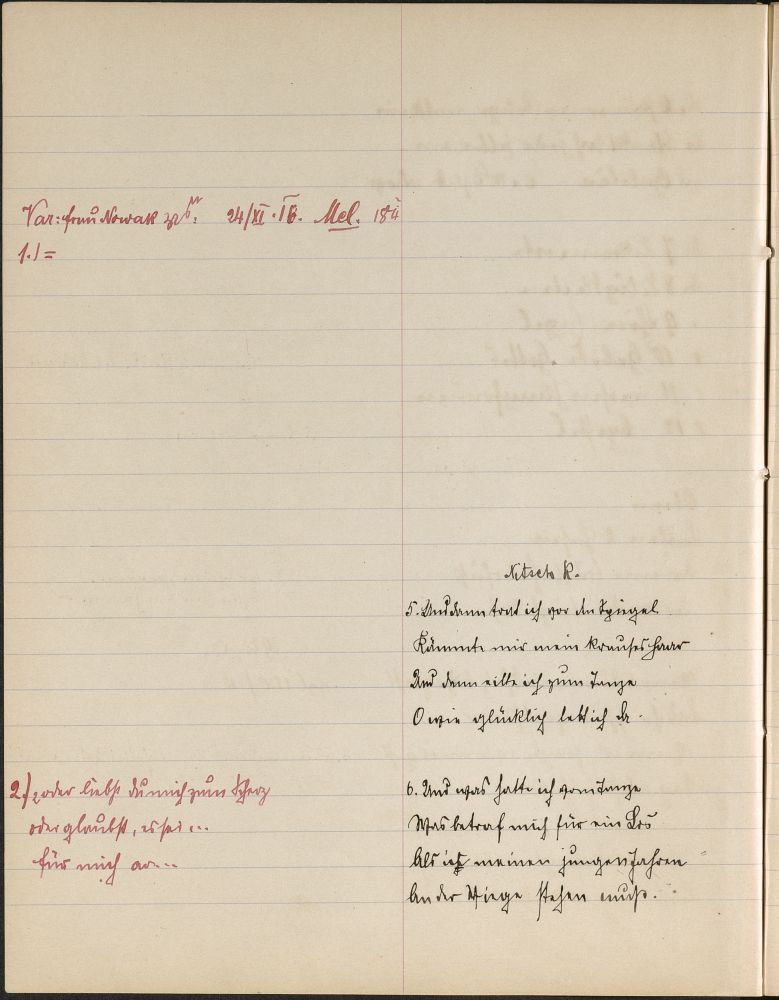 Var: Frau Nowak 24/XI. 16. Mel. 184
1.) =
Nitsch R.
5. Und dann trat ich vor den Spiegel
Kämmte mir mein krauses Haar
Und dann eilte ich zum Tanze
O wie glücklich lebt ich da.
2.) oder liebst du mich zum Scherz
oder glaubst, es sei ...
für mich
6. Und was hatte ich vom Tanze
Was betraf mich für ein Los
Als ich meinen jungen Jahren
An der Wiege stehen muß.